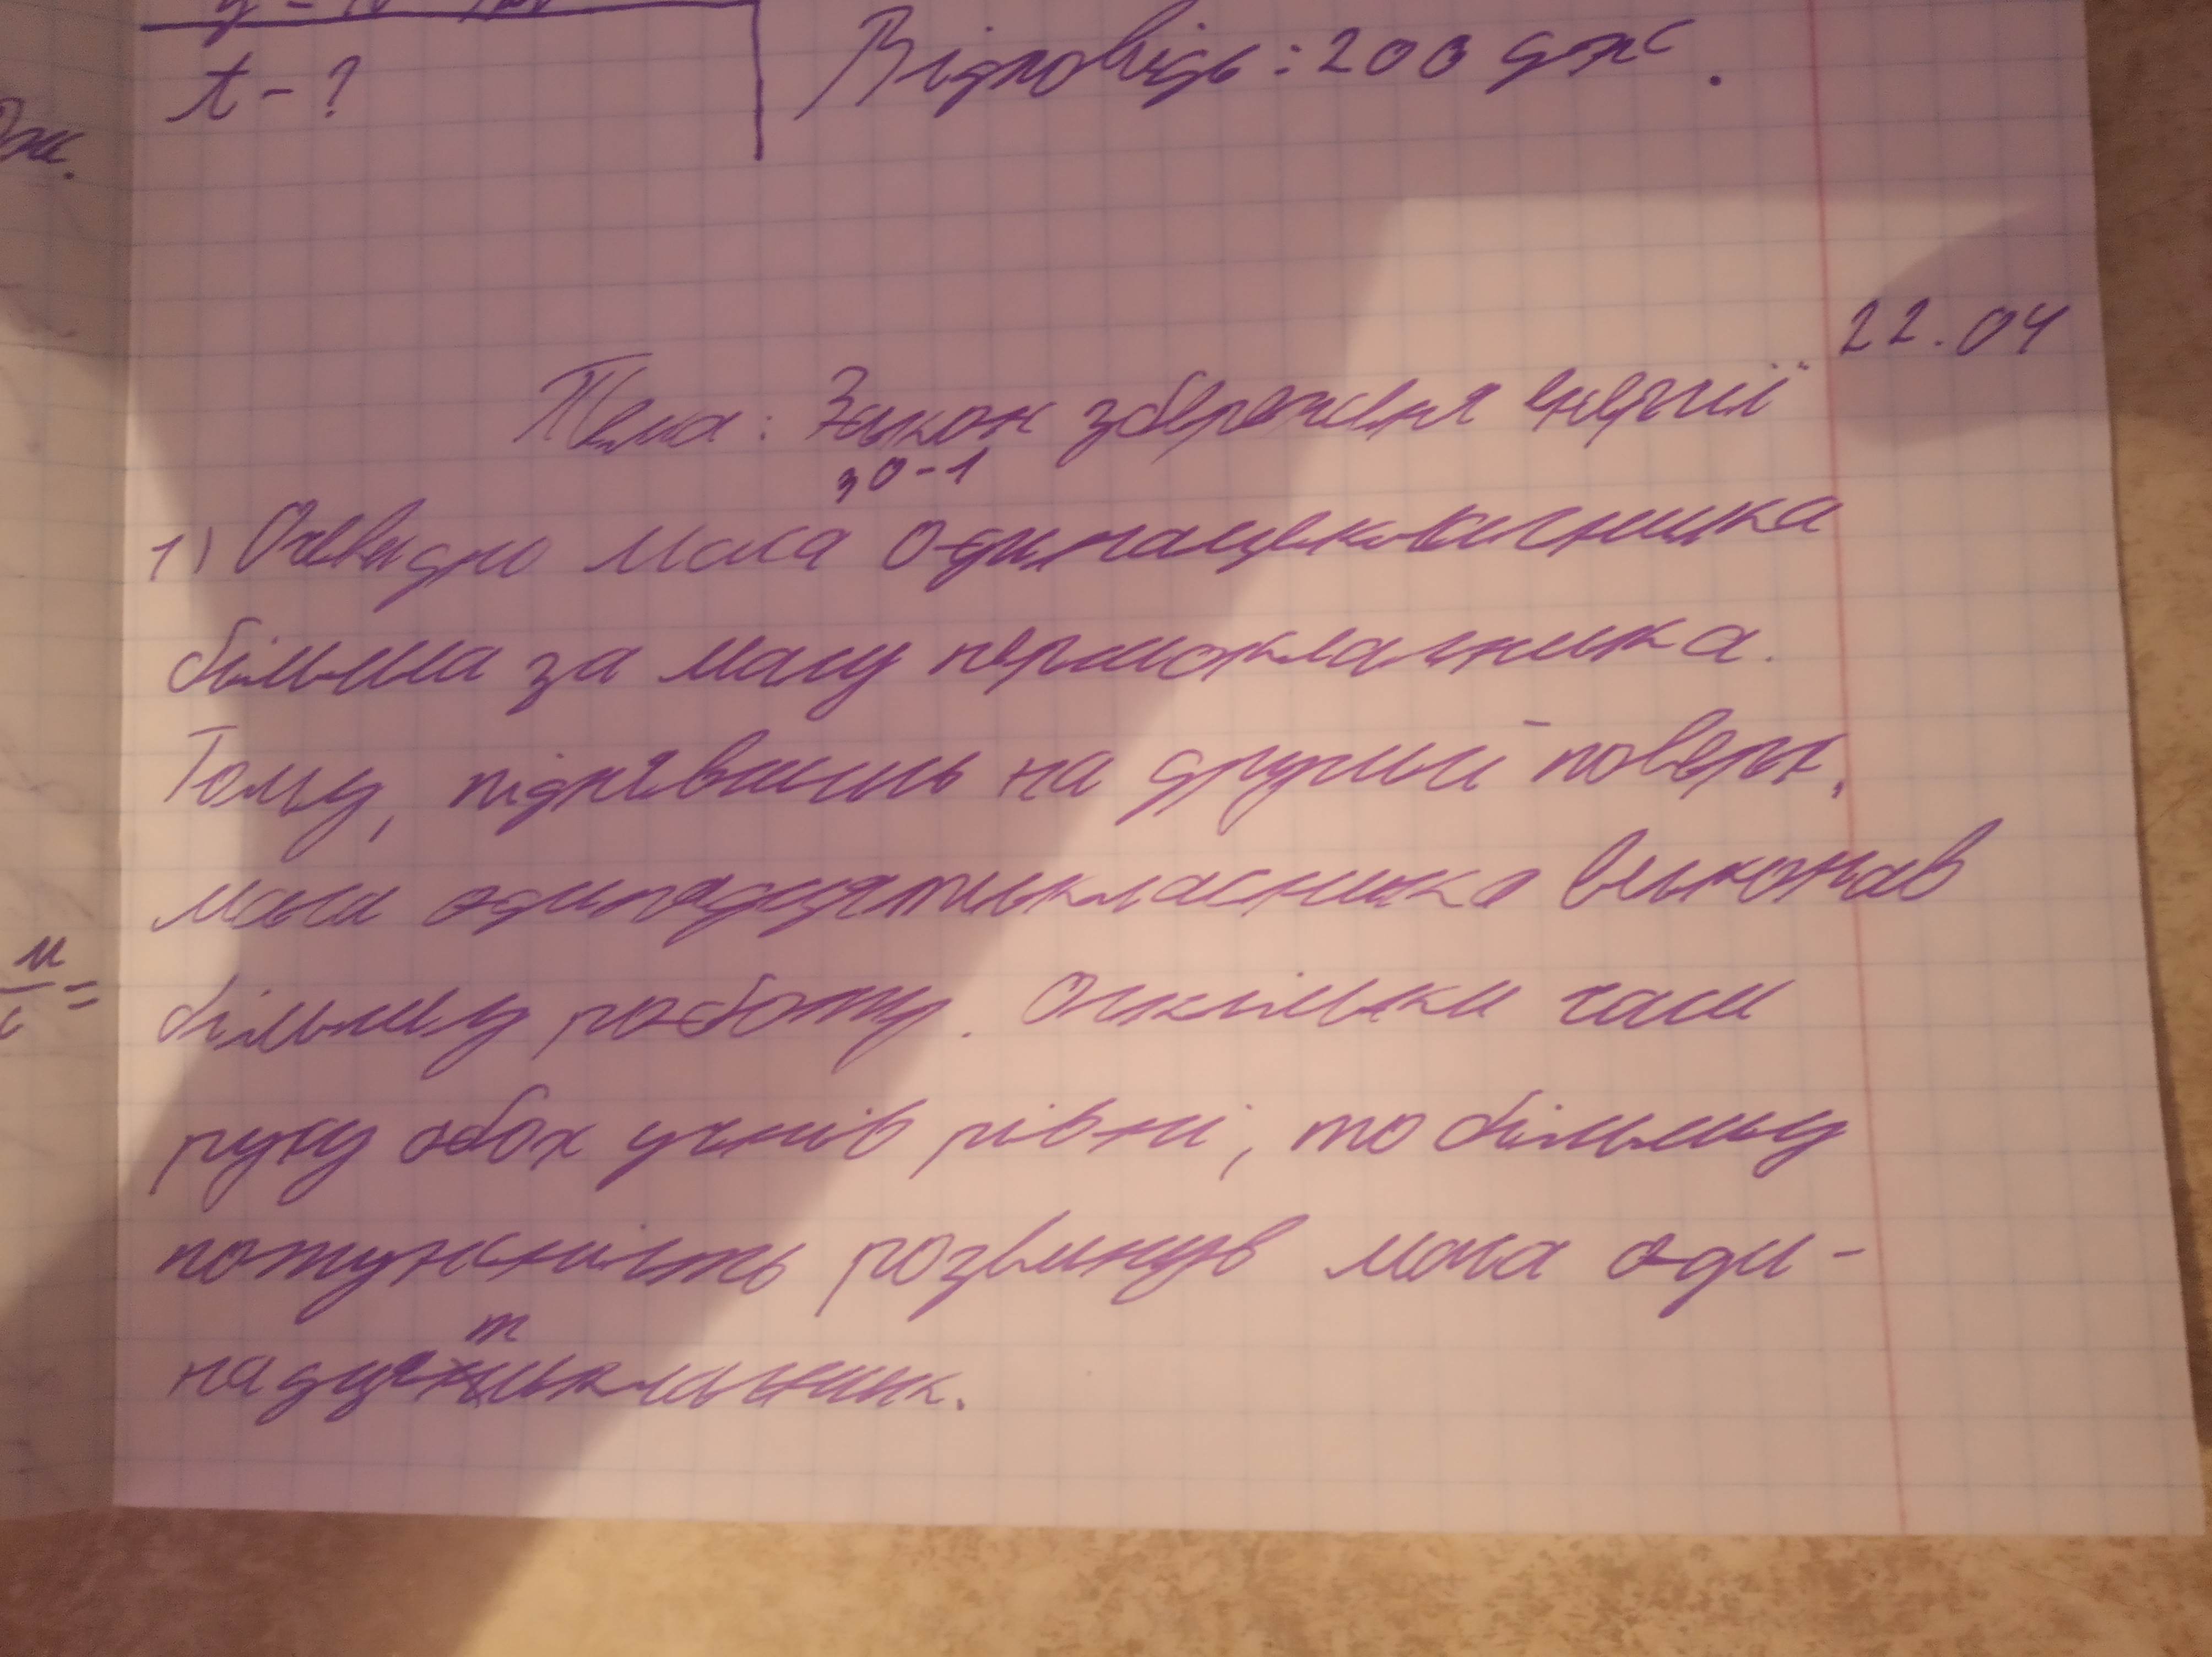 t - ?
Відповідь: 200 Дж.
22.04
Тема: Закон збереження енергії
30-1
1) Очевидно маса
більша за масу першокласника.
Тому, піднявшись на другий поверх,
маса одинадцятикласника виконав
більшу роботу. Оскільки часи
руху обох учнів рівні, то більшу
потужність розвинув маса оди-
надцятикласник.